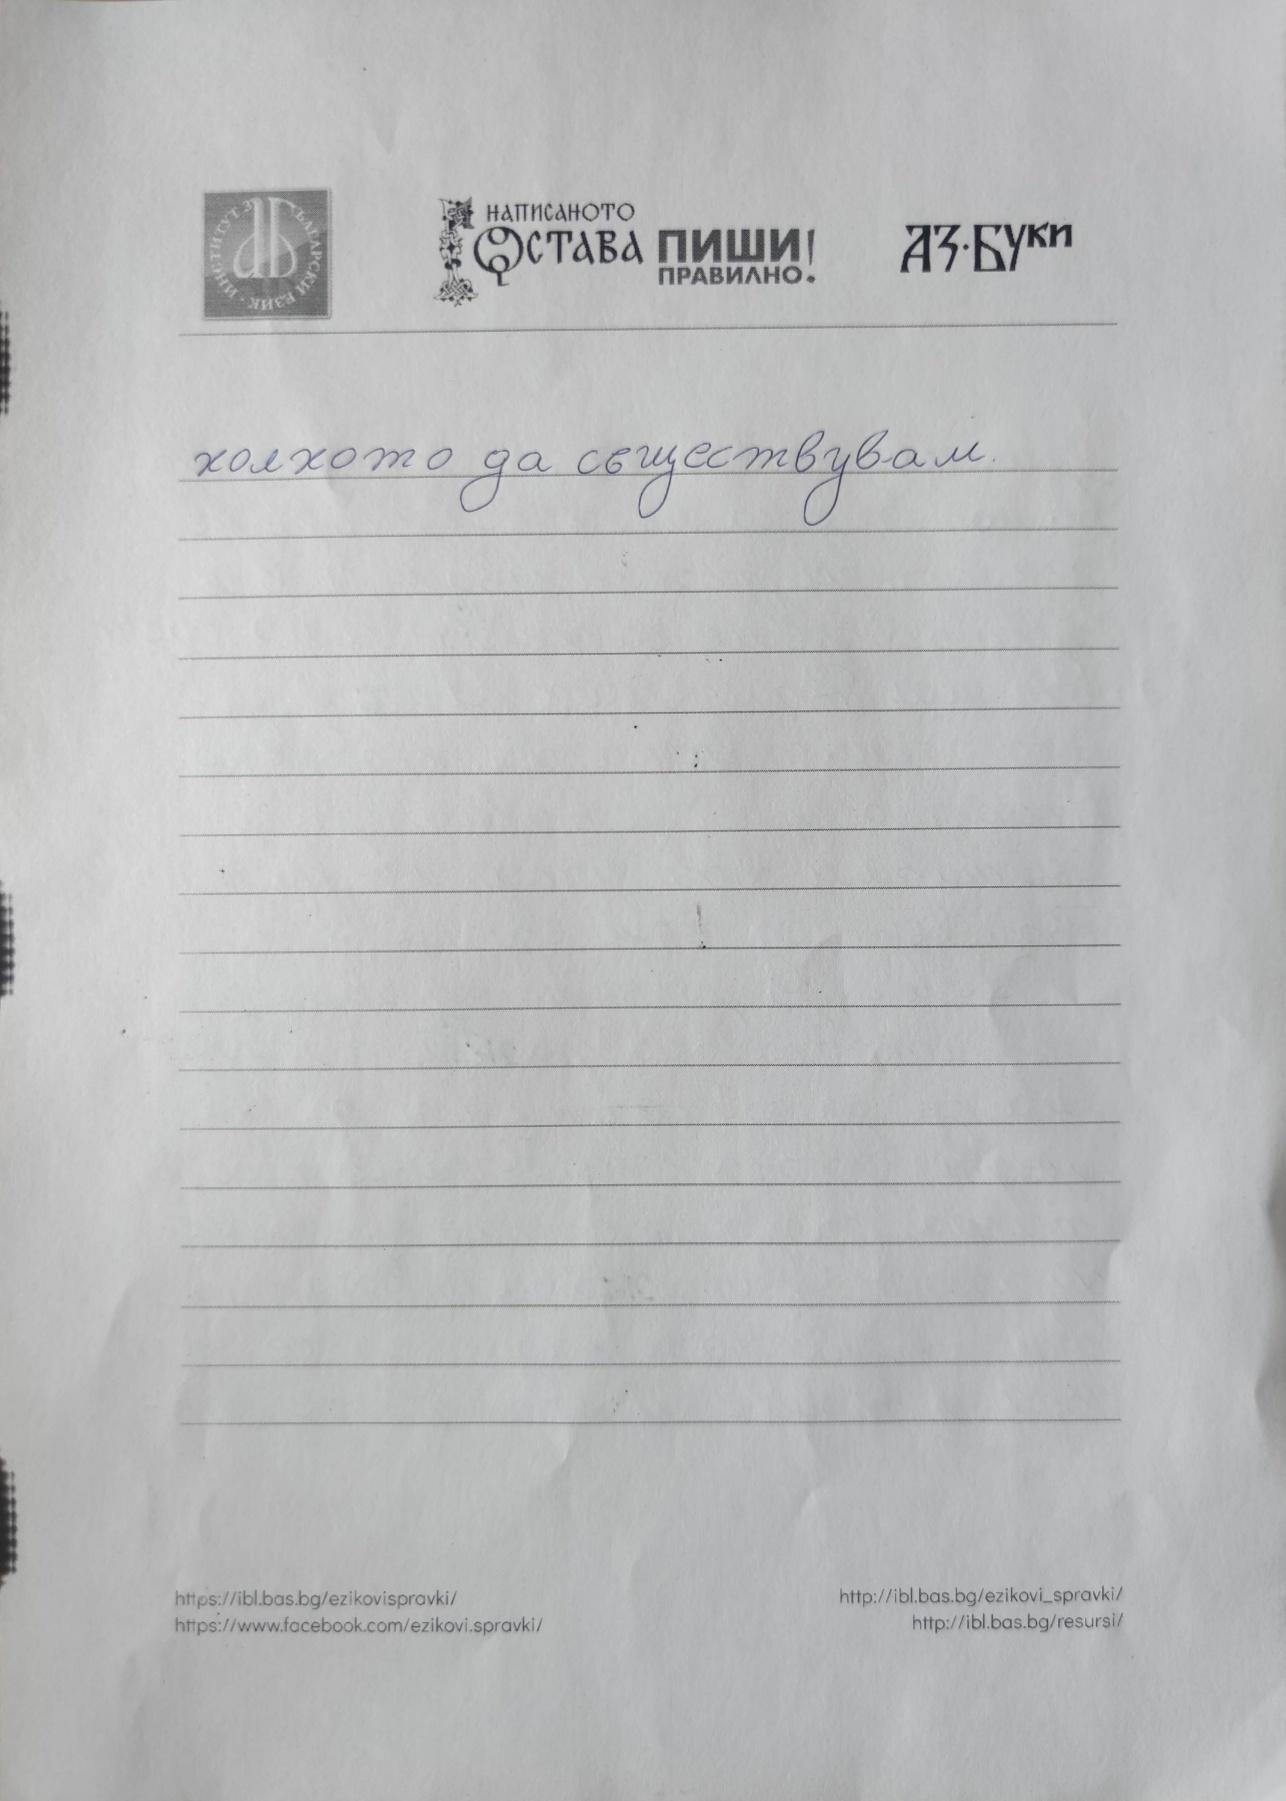 ИНСТИТУТ ЗА БЪЛГАРСКИ ЕЗИК
НАПИСАНОТО
ОСТАВА ПИШИ
ПРАВИЛНО!
АЗ·БУКИ
колкото да съществувам.
https://ibl.bas.bg/ezikovispravki/
https://www.facebook.com/ezikovi.spravki/
http://ibl.bas.bg/ezikovi_spravki/
http://ibl.bas.bg/resursi/